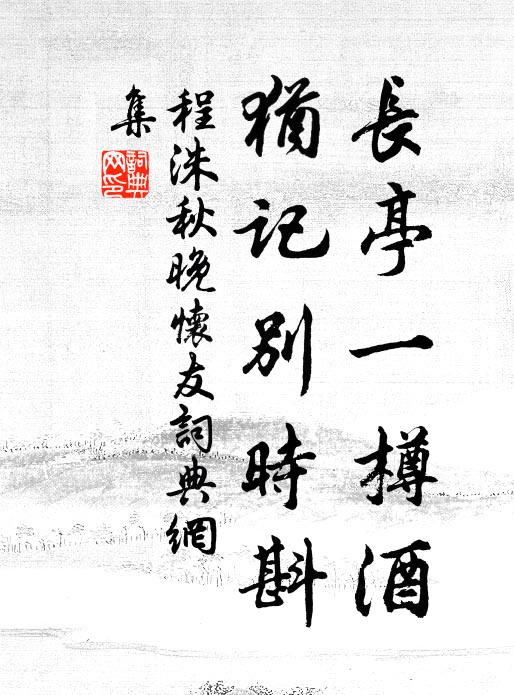 長亭一樽酒
猶記別時斟
程洙秋晚懷友詞典網
集
詞典網印